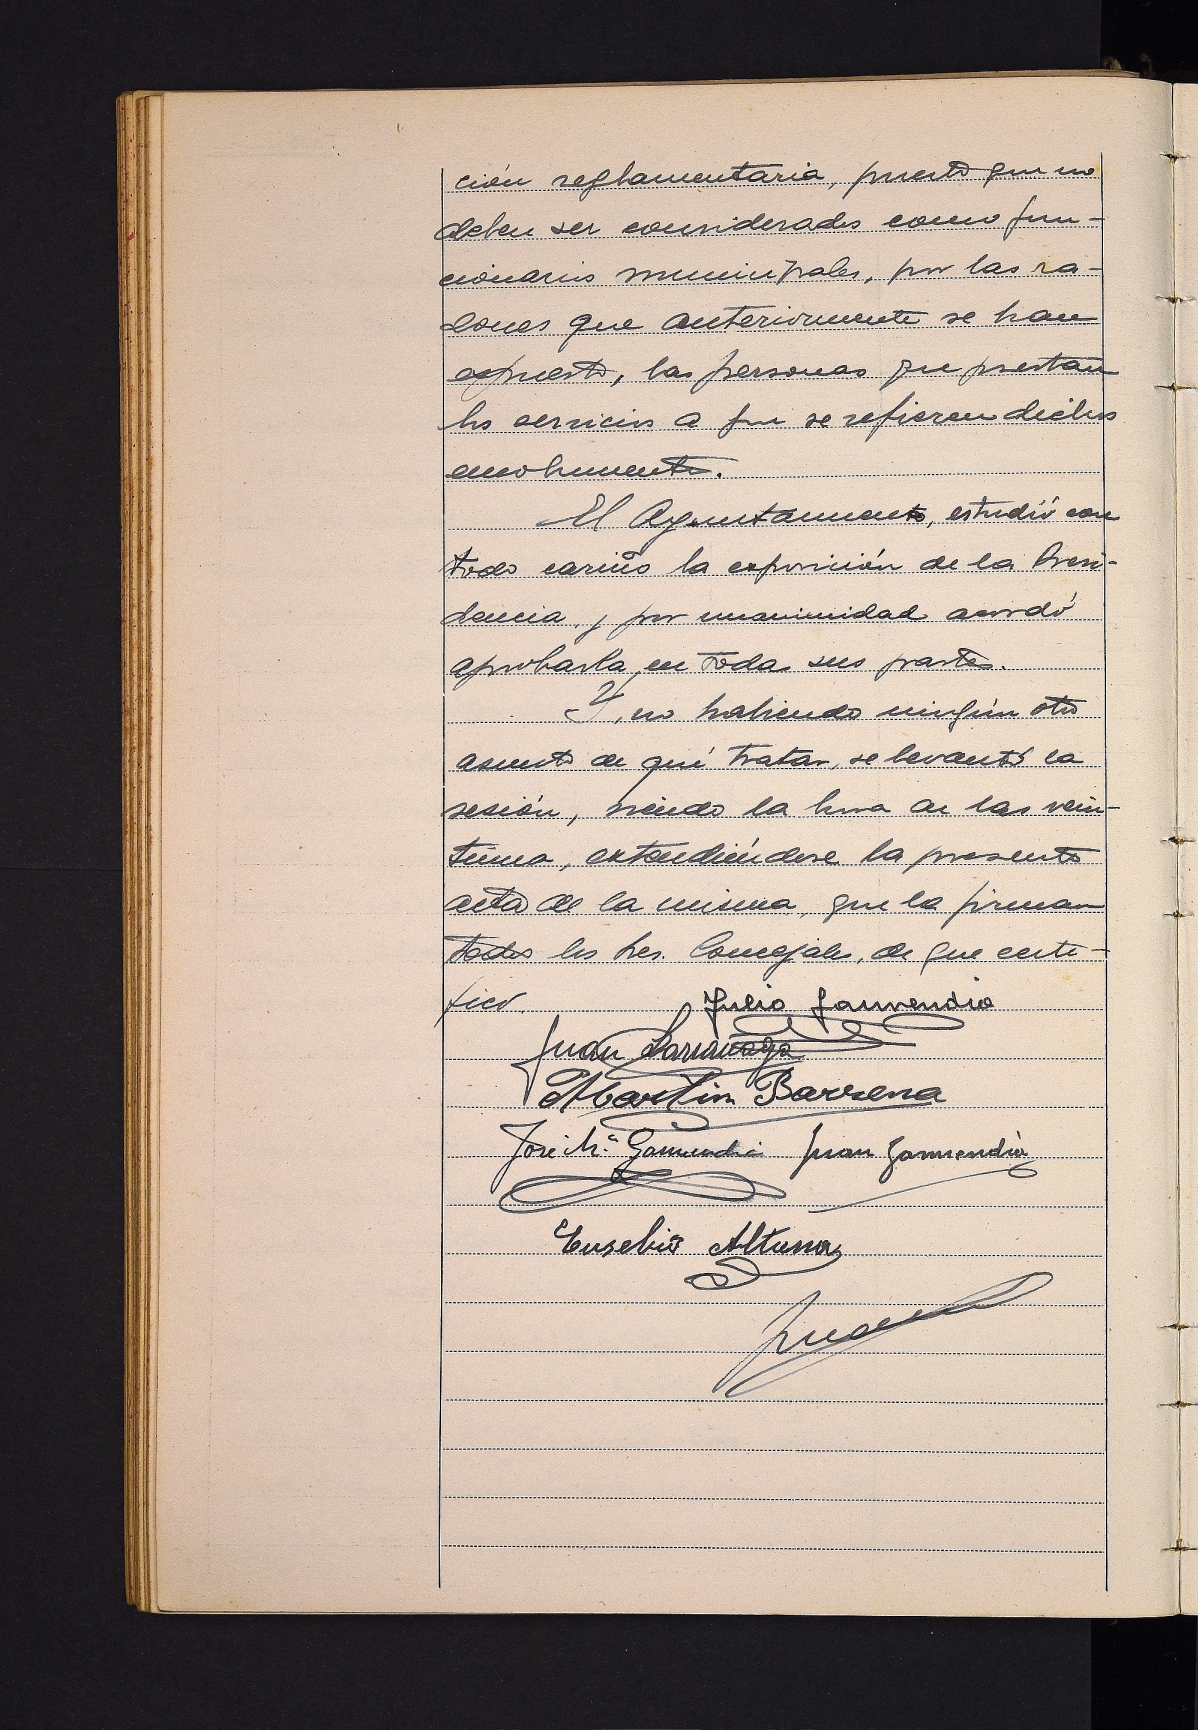 ción reglamentaria, puesto que no
deben ser considerados como fun-
cionarios municipales, por las ra-
zones que anteriormente se han
expuesto, las personas que prestan
los servicios a que se refieren dichos
emolumentos.
El Ayuntamiento, estudió con
todo cariño la exposición de la Presi-
dencia, y por unanimidad acordó
aprobarla en todas sus partes.
Y, no habiendo ningún otro
asunto de qué tratar, se levantó la
sesión, siendo la hora de las vein-
tiuna, extendiéndose la presente
acta de la misma, que la firman
todos los Sres. Concejales, de que certi-
fico.
Julio Garmendia
Juan Larrañaga
Martin Barrena
José Mª Garmendia Juan Garmendia
Eusebio Altuna